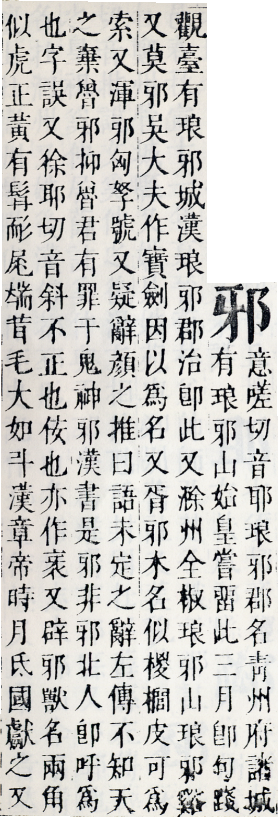 邪
意嗟切音耶琅邪郡名青州府諸城
有琅邪山始皇嘗畱此三月卽句踐
觀臺有琅邪城漢琅邪郡治卽此又滁州全椒琅邪山琅邪谿
又莫邪吳大夫作寶劍因以爲名又胥邪木名似椶櫚皮可爲
索又渾邪匈孥號又疑辭顏之推曰語未定之辭左傳不知天
之棄魯邪抑魯君有罪于鬼神邪漢書是邪非邪北人卽呼爲
也字誤又徐耶切音斜不正也佞也亦作衺又辟邪獸名兩角
似虎正黃有髯耏尾端茸毛大如斗漢章帝時月氏國獻之又